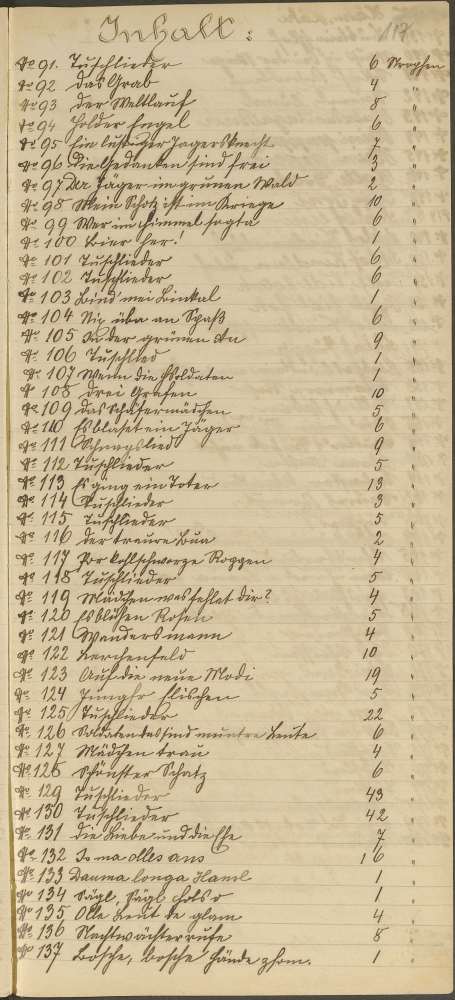 Inhalt: 117
No 91. Tuschlieder 6 Strophen
No 92 das Grab 4 "
No 93 der Weltlauf 8 "
No 94 holder Engel 6 "
No 95 Ein lustiger Jagersknecht 7 "
No 96 Die Gedanken sind frei 3 "
No 97 Der Jäger im grünen Wald 2 "
No 98 Mein Schatz ist im Kriege 10 "
No 99 Wer im Himmel sagta 6 "
No 100 Bier her! 1 "
No 101 Tuschlieder 6 "
No 102 Tuschlieder 6 "
No 103 Bind mei Binkal 1 "
No 104 Nix üba an Spaß 6 "
No 105 In der grünen Au 9 "
No 106 Tuschlied 1 "
No 107 Wenn die Soldaten 1 "
No 108 Drei Grafen 10 "
No 109 das Schäfermädchen 5 "
No 110 Es blaset ein Jäger 6 "
No 111 Schnapslied 9 "
No 112 Tuschlieder 5 "
No 113 Es ging ein Toter 13 "
No 114 Tuschlieder 3 "
No 115 Tuschlieder 5 "
No 116 der traure Bua 2 "
No 117 Por kohlschwarze Roggen 4 "
No 118 Tuschlieder 5 "
No 119 Mädchen was fehlet dir? 4 "
No 120 Es blühen Rosen 5 "
No 121 Wandersmann 4 "
No 122 Lerchenfeld 10 "
No 123 Auf die neue Modi 19 "
No 124 Jungfr Lischen 5 "
No 125 Tuschlieder 22 "
No 126 Soldaten das sind muntre Leute 6 "
No 127 Mädchen trau 4 "
No 128 Schönster Schatz 6 "
No 129 Tuschlieder 43 "
No 130 Tuschlieder 42 "
No 131 die Liebe und die Ehe 7 "
No 132 Is ma alles ans 16 "
No 133 Dauma longa Hansl 1 "
No 134 Vögl, Vögl 1 "
No 135 Olle Leut de glam 4 "
No 136 Nachtwächterrufe 8 "
No 137 Bosche, bosche Hände zsom. 1 "